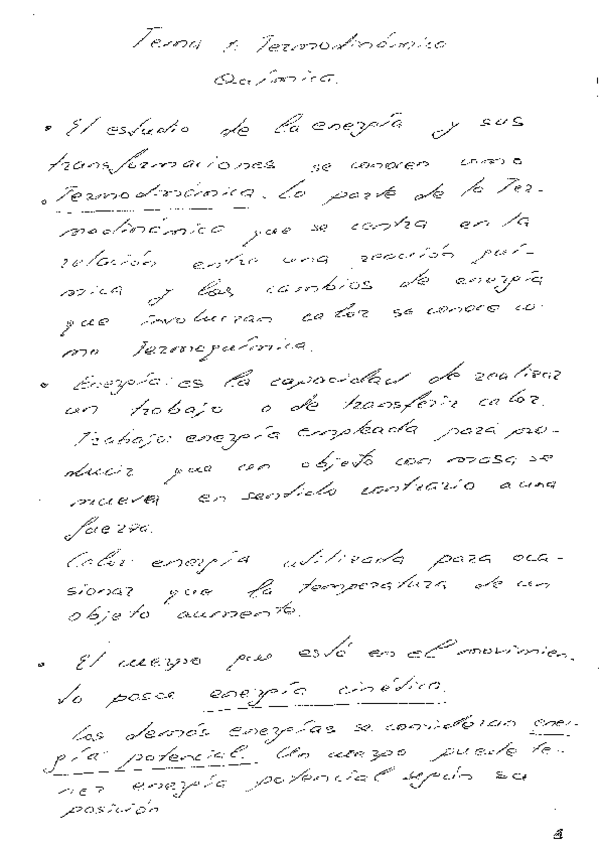 Tema 1: Termodinámica
Química.
• El estudio de la energía y sus
transformaciones se conocen como
• Termodinámica. La parte de la Ter-
modinámica que se centra en la
relación entre una reacción quí-
mica y los cambios de energía
que involucran calor se conoce co-
mo Termoquímica.
• Energía: es la capacidad de realizar
un trabajo o de transferir calor.
Trabajo: energía empleada para pro-
ducir que un objeto con masa se
mueva en sentido contrario a una
fuerza.
Calor: energía utilizada para oca-
sionar que la temperatura de un
objeto aumente.
• El cuerpo que está en el movimien-
to posee energía cinética.
Las demás energías se consideran ener-
gía potencial. Un cuerpo puede te-
ner energía potencial según su
posición
1